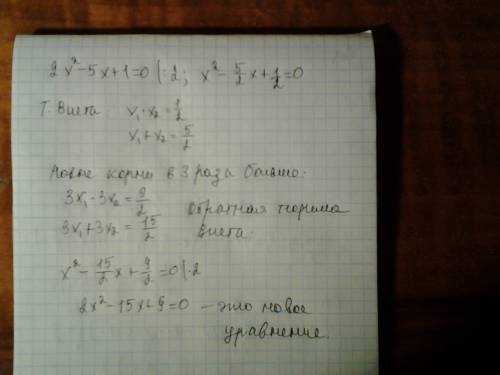 2x²-5x+1=0 |:2; x²- 5/2 x+ 1/2=0
Т. Виета: x₁·x₂= 1/2
x₁+x₂= 5/2
Новые корни в 3 раза больше:
3x₁·3x₂= 9/2
3x₁+3x₂= 15/2
обратная теорема
Виета.
x²- 15/2 x+ 9/2=0 |·2
2x²-15x+9=0 – это новое
уравнение.